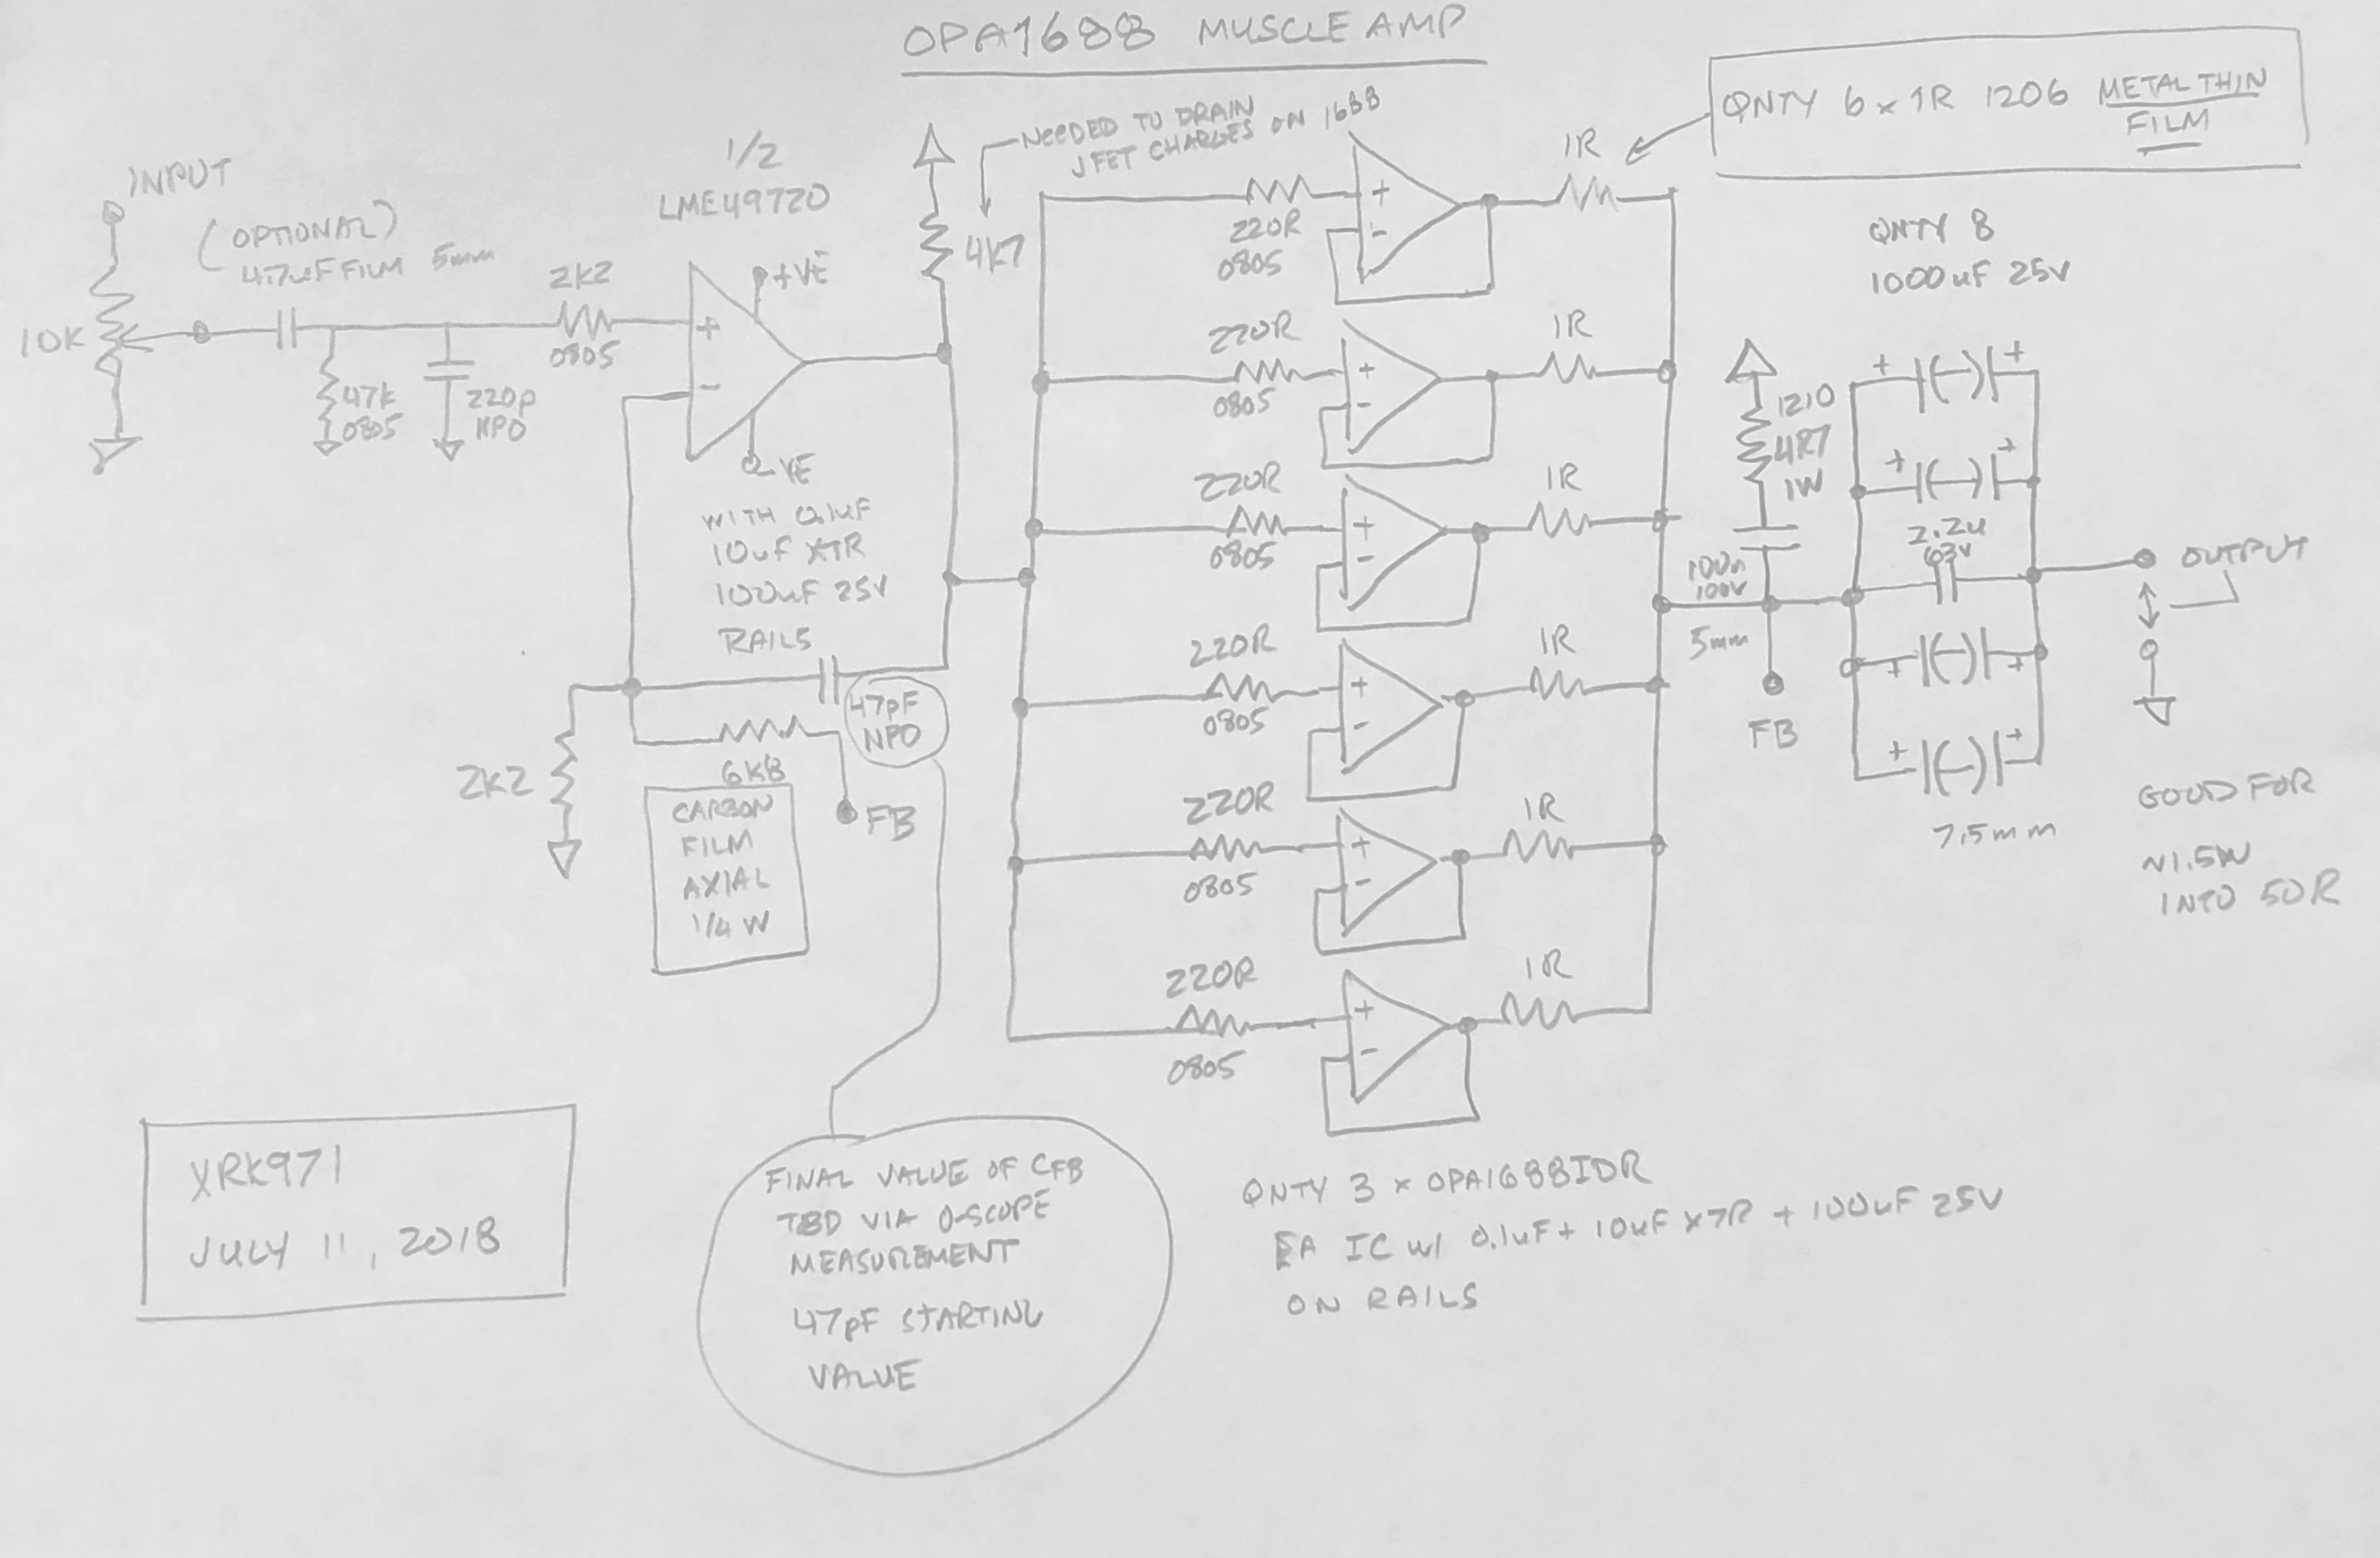 OPA1688 MUSCLE AMP
INPUT
(OPTIONAL)
4.7uF FILM 5mm
10K
47K
0805
220p
NPO
2K2
0805
1/2
LME49720
+VE
-VE
+
-
WITH 0.1uF
10uF X7R
100uF 25V
RAILS
4K7
NEEDED TO DRAIN
JFET CHARGES ON 1688
2K2
47pF
NPO
6K8
CARBON
FILM
AXIAL
1/4 W
FB
220R
0805
+
-
1R
220R
0805
+
-
1R
220R
0805
+
-
1R
220R
0805
+
-
1R
220R
0805
+
-
1R
220R
0805
+
-
1R
QNTY 6 x 1R 1206 METAL THIN
FILM
QNTY 8
1000uF 25V
1210
4R7
1W
100n
100V
5mm
FB
+ +
+ +
2.2u
63V
+ +
+ +
7.5mm
OUTPUT
GOOD FOR
~1.5W
INTO 50R
XRK971
JULY 11, 2018
FINAL VALUE OF CFB
TBD VIA O-SCOPE
MEASUREMENT
47pF STARTING
VALUE
QNTY 3 x OPA1688IDR
EA IC w/ 0.1uF + 10uF X7R + 100uF 25V
ON RAILS